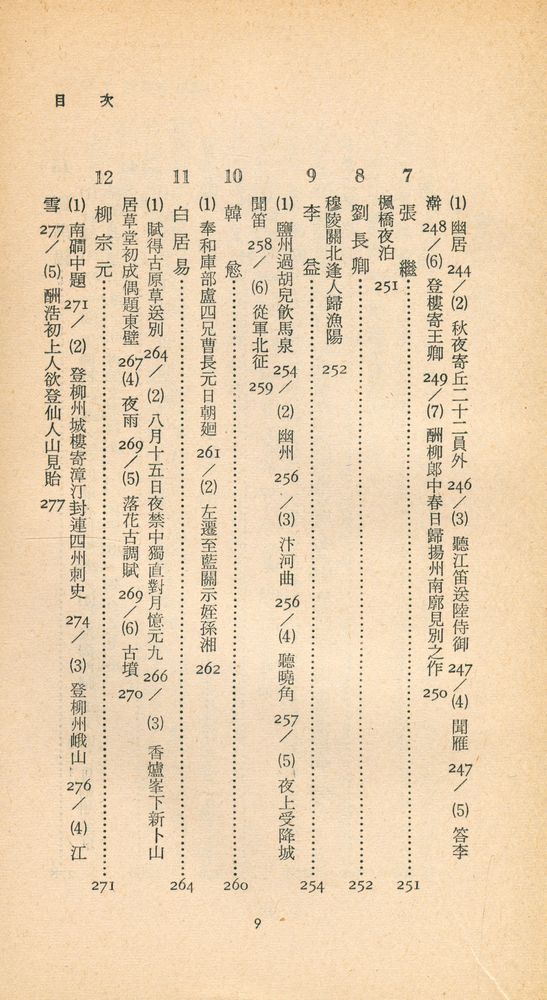 目次
(1) 幽居 244／(2) 秋夜寄丘二十二員外 246／(3) 聽江笛送陸侍御 247／(4) 聞雁 247／(5) 答李
澣 248／(6) 登樓寄王卿 249／(7) 酬柳郎中春日歸揚州南廓見別之作 250
7 張繼 251
楓橋夜泊 251
8 劉長卿 252
穆陵關北逢人歸漁陽 252
9 李益 254
(1) 鹽州過胡兒飲馬泉 254／(2) 幽州 256／(3) 汴河曲 256／(4) 聽曉角 257／(5) 夜上受降城
聞笛 258／(6) 從軍北征 259
10 韓愈 260
(1) 奉和庫部盧四兄曹長元日朝廻 261／(2) 左遷至藍關示姪孫湘 262
11 白居易 264
(1) 賦得古原草送別 264／(2) 八月十五日夜禁中獨直對月憶元九 266／(3) 香爐峯下新卜山
居草堂初成偶題東壁 267 (4) 夜雨 269／(5) 落花古調賦 269／(6) 古墳 270
12 柳宗元 271
(1) 南磵中題 271／(2) 登柳州城樓寄漳汀封連四州刺史 274／(3) 登柳州峨山 276／(4) 江
雪 277／(5) 酬浩初上人欲登仙人山見貽 277
9